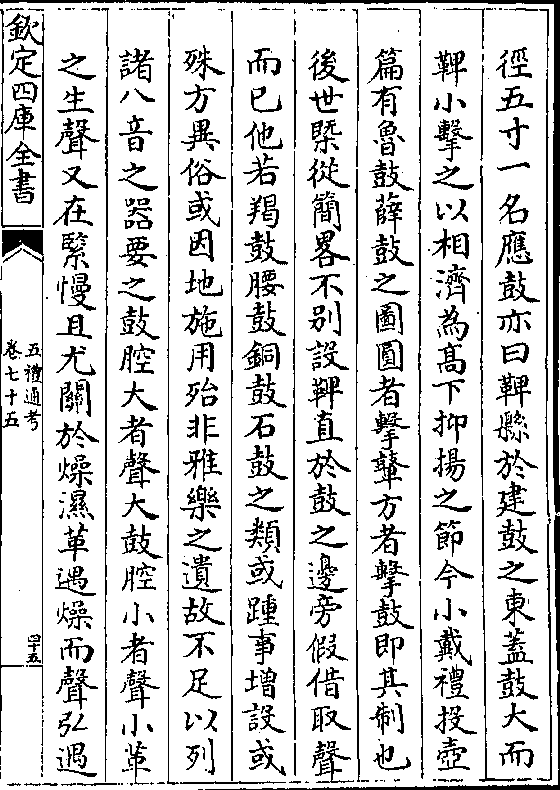 徑五寸一名應鼓亦曰鞞縣於建鼓之東蓋鼓大而
鞞小擊之以相濟為高下抑揚之節今小戴禮投壺
篇有魯鼓薛鼓之圖圓者擊鼙方者擊鼓即其制也
後世槩從簡畧不别設鞞直於鼓之邊旁假借取聲
而已他若羯鼓腰鼓銅鼓石鼓之類或踵事增設或
殊方異俗或因地施用殆非雅樂之遺故不足以列
諸八音之器要之鼓腔大者聲大鼓腔小者聲小革
之生聲又在緊慢且尤關於燥濕革遇燥而聲弘遇
欽定四庫全書
五禮通考
卷七十五
四十五